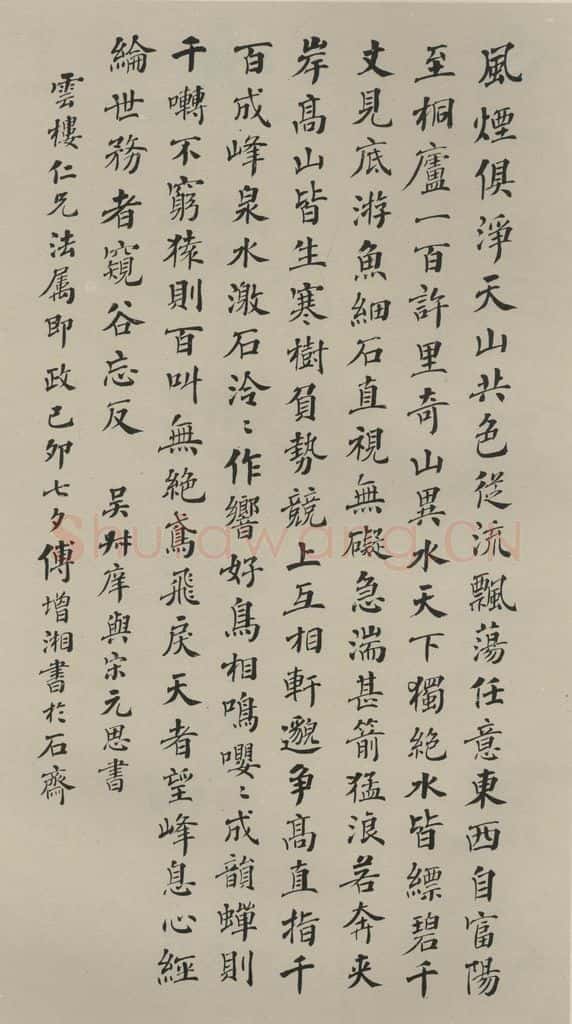 風煙俱淨天山共色從流飄蕩任意東西自富陽
至桐廬一百許里奇山異水天下獨絶水皆縹碧千
丈見底游魚細石直視無礙急湍甚箭猛浪若奔夾
岸高山皆生寒樹負勢競上互相軒邈争高直指千
百成峰泉水激石泠〻作響好鳥相鳴嚶〻成韻蟬則
千囀不窮猿則百叫無絶鳶飛戾天者望峰息心經
綸世務者窺谷忘反 吳叔庠與宋元思書
雲樓仁兄法属即政己卯七夕傅增湘書於石齋
Shufawang.CN